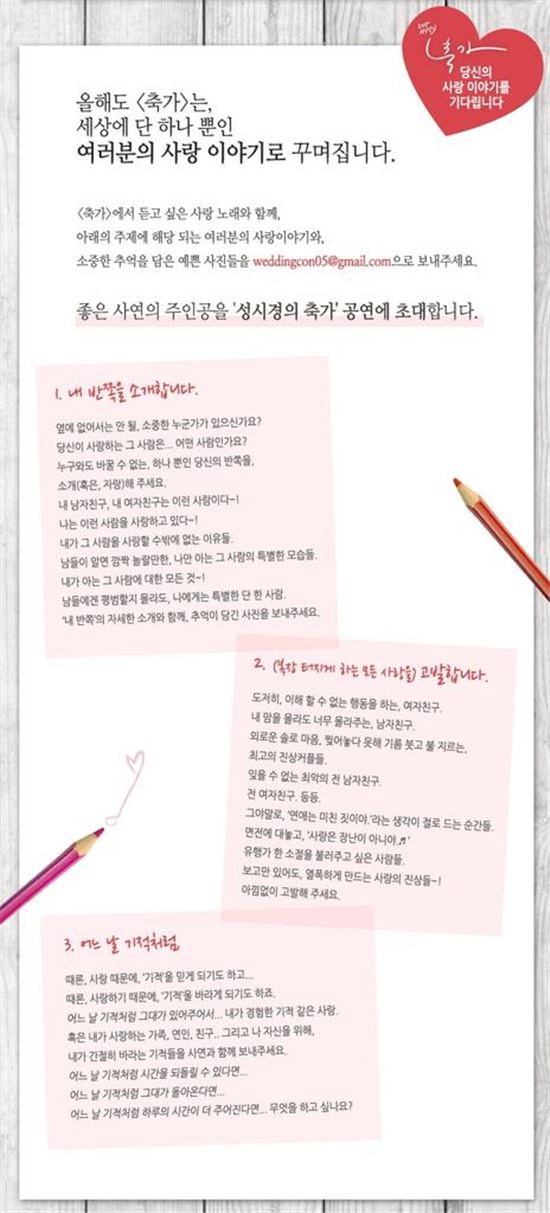 축가
당신의
사랑 이야기를
기다립니다
올해도 <축가>는,
세상에 단 하나 뿐인
여러분의 사랑 이야기로 꾸며집니다.
<축가>에서 듣고 싶은 사랑 노래와 함께,
아래의 주제에 해당 되는 여러분의 사랑이야기와,
소중한 추억을 담은 예쁜 사진들을 weddingcon05@gmail.com으로 보내주세요.
좋은 사연의 주인공을 '성시경의 축가' 공연에 초대합니다.
1. 내 반쪽을 소개합니다.
옆에 없어서는 안 될, 소중한 누군가가 있으신가요?
당신이 사랑하는 그 사람은... 어떤 사람인가요?
누구와도 바꿀 수 없는, 하나 뿐인 당신의 반쪽을,
소개(혹은, 자랑)해 주세요.
내 남자친구, 내 여자친구는 이런 사람이다~!
나는 이런 사람을 사랑하고 있다~!
내가 그 사람을 사랑할 수밖에 없는 이유들.
남들이 알면 깜짝 놀랄만한, 나만 아는 그 사람의 특별한 모습들.
내가 아는 그 사람에 대한 모든 것~!
남들에겐 평범할지 몰라도, 나에게는 특별한 단 한 사람.
'내 반쪽'의 자세한 소개와 함께, 추억이 담긴 사진을 보내주세요.
2. (복장 터지게 하는 모든 사랑을) 고발합니다.
도저히, 이해 할 수 없는 행동을 하는, 여자친구.
내 맘을 몰라도 너무 몰라주는, 남자친구.
외로운 솔로 마음, 찢어놓다 못해 기름 붓고 불 지르는,
최고의 진상커플들.
잊을 수 없는 최악의 전 남자친구.
전 여자친구. 등등.
그야말로, '연애는 미친 짓이야.'라는 생각이 절로 드는 순간들.
면전에 대놓고, '사랑은 장난이 아니야.♬'
유행가 한 소절을 불러주고 싶은 사람들.
보고만 있어도, 열폭하게 만드는 사랑의 진상들~!
아낌없이 고발해 주세요.
3. 어느 날 기적처럼,
때론, 사랑 때문에, '기적'을 믿게 되기도 하고...
때론, 사랑하기 때문에, '기적'을 바라게 되기도 하죠.
어느 날 기적처럼 그대가 있어주어서... 내가 경험한 기적 같은 사랑.
혹은 내가 사랑하는 가족, 연인, 친구.. 그리고 나 자신을 위해,
내가 간절히 바라는 기적들을 사연과 함께 보내주세요.
어느 날 기적처럼 시간을 되돌릴 수 있다면...
어느 날 기적처럼 그대가 돌아온다면...
어느 날 기적처럼 하루의 시간이 더 주어진다면... 무엇을 하고 싶나요?